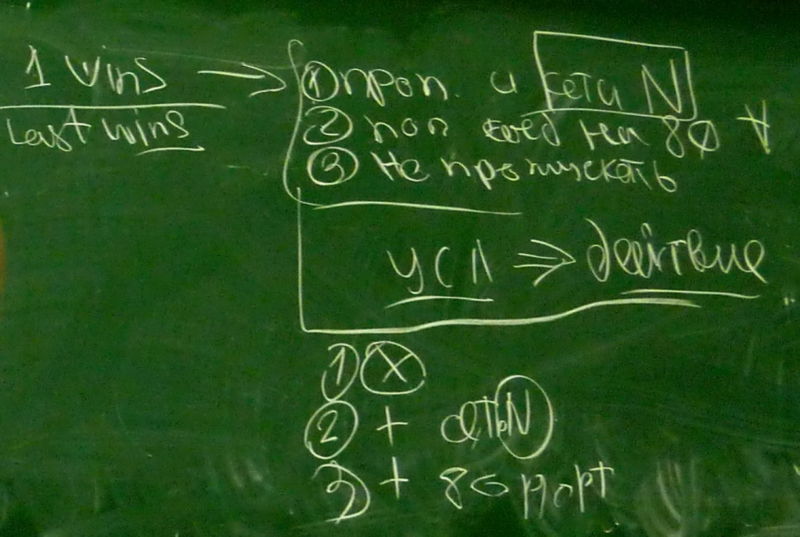 1 wins → ① проп. и сети N
Last wins ② поп соед на 80 ∀
③ не пропускать
усл ⇒ действие
① X
② + сеть N
3) + 80 порт